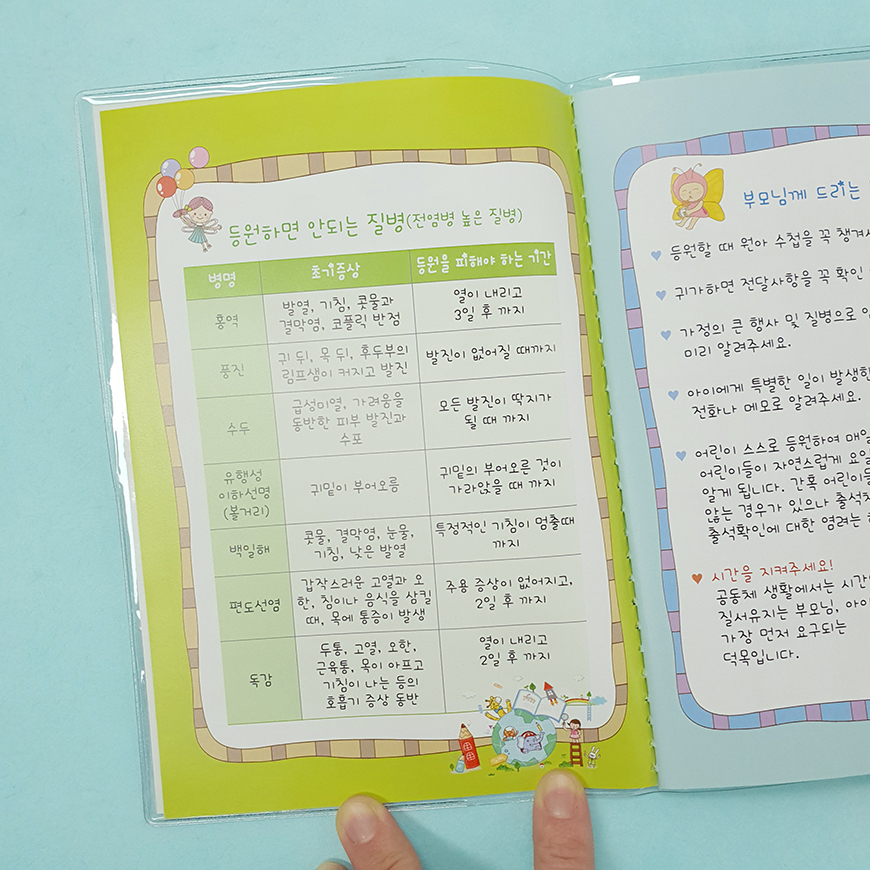 등원하면 안되는 질병(전염병 높은 질병)
병명 초기증상 등원을 피해야 하는 기간
홍역
발열, 기침, 콧물과
결막염, 코플릭 반점
열이 내리고
3일 후 까지
풍진
귀 뒤, 목 뒤, 후두부의
림프샘이 커지고 발진
발진이 없어질 때까지
수두
급성미열, 가려움을
동반한 피부 발진과
수포
모든 발진이 딱지가
될 때 까지
유행성
이하선염
(볼거리)
귀밑이 부어오름
귀밑의 부어오른 것이
가라앉을 때 까지
백일해
콧물, 결막염, 눈물,
기침, 낮은 발열
특징적인 기침이 멈출때
까지
편도선염
갑작스러운 고열과 오
한, 침이나 음식을 삼킬
때, 목에 통증이 발생
주용 증상이 없어지고,
2일 후 까지
독감
두통, 고열, 오한,
근육통, 목이 아프고
기침이 나는 등의
호흡기 증상 동반
열이 내리고
2일 후 까지
부모님께 드리는
등원할 때 원아 수첩을 꼭 챙겨
귀가하면 전달사항을 꼭 확인
가정의 큰 행사 및 질병으로
미리 알려주세요.
아이에게 특별한 일이 발생한
전화나 메모로 알려주세요.
어린이 스스로 등원하여 매일
어린이들이 자연스럽게 요일
알게 됩니다. 간혹 어린이들
않는 경우가 있으나 출석
출석확인에 대한 염려는
시간을 지켜주세요!
공동체 생활에서는 시간
질서유지는 부모님, 아이
가장 먼저 요구되는
덕목입니다.